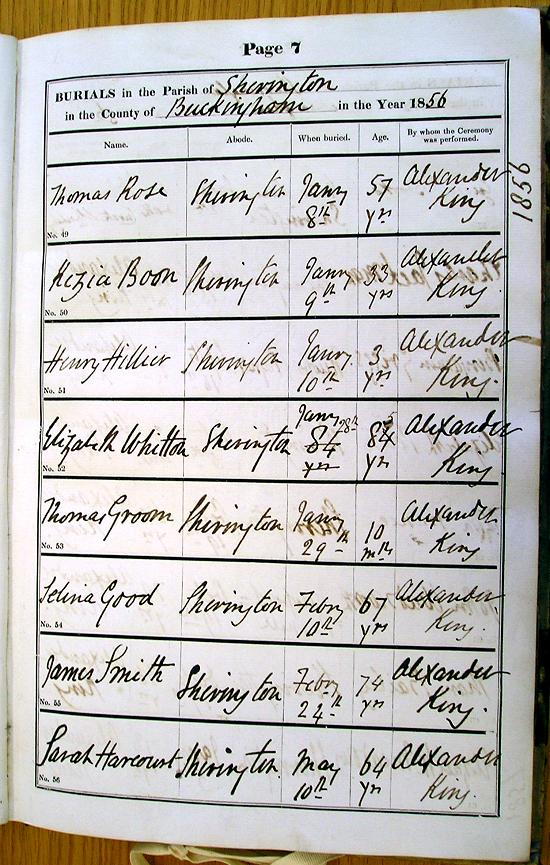 Page 7
BURIALS in the Parish of Sherington
in the County of Buckingham in the Year 1856
Name. Abode. When buried. Age. By whom the Ceremony was performed.
1856
Thomas Rose Sherington Jany 8th 57 yrs Alexander King
No. 49
Kezia Boon Sherington Jany 9th 33 yrs Alexander King.
No. 50
Henry Hillier Sherington Jany 10th 3 yrs Alexander King.
No. 51
Elizabeth Whitton Sherington Jany 28th 84 yrs 84 5 yrs Alexander King
No. 52
Thomas Groom Sherington Jany 29th 10 mths Alexander King
No. 53
Selina Good Sherington Feby 10th 67 yrs Alexander King
No. 54
James Smith Sherington Feby 24th 74 yrs Alexander King.
No. 55
Sarah Harcourt Sherington May 10th 64 yr Alexander King.
No. 56